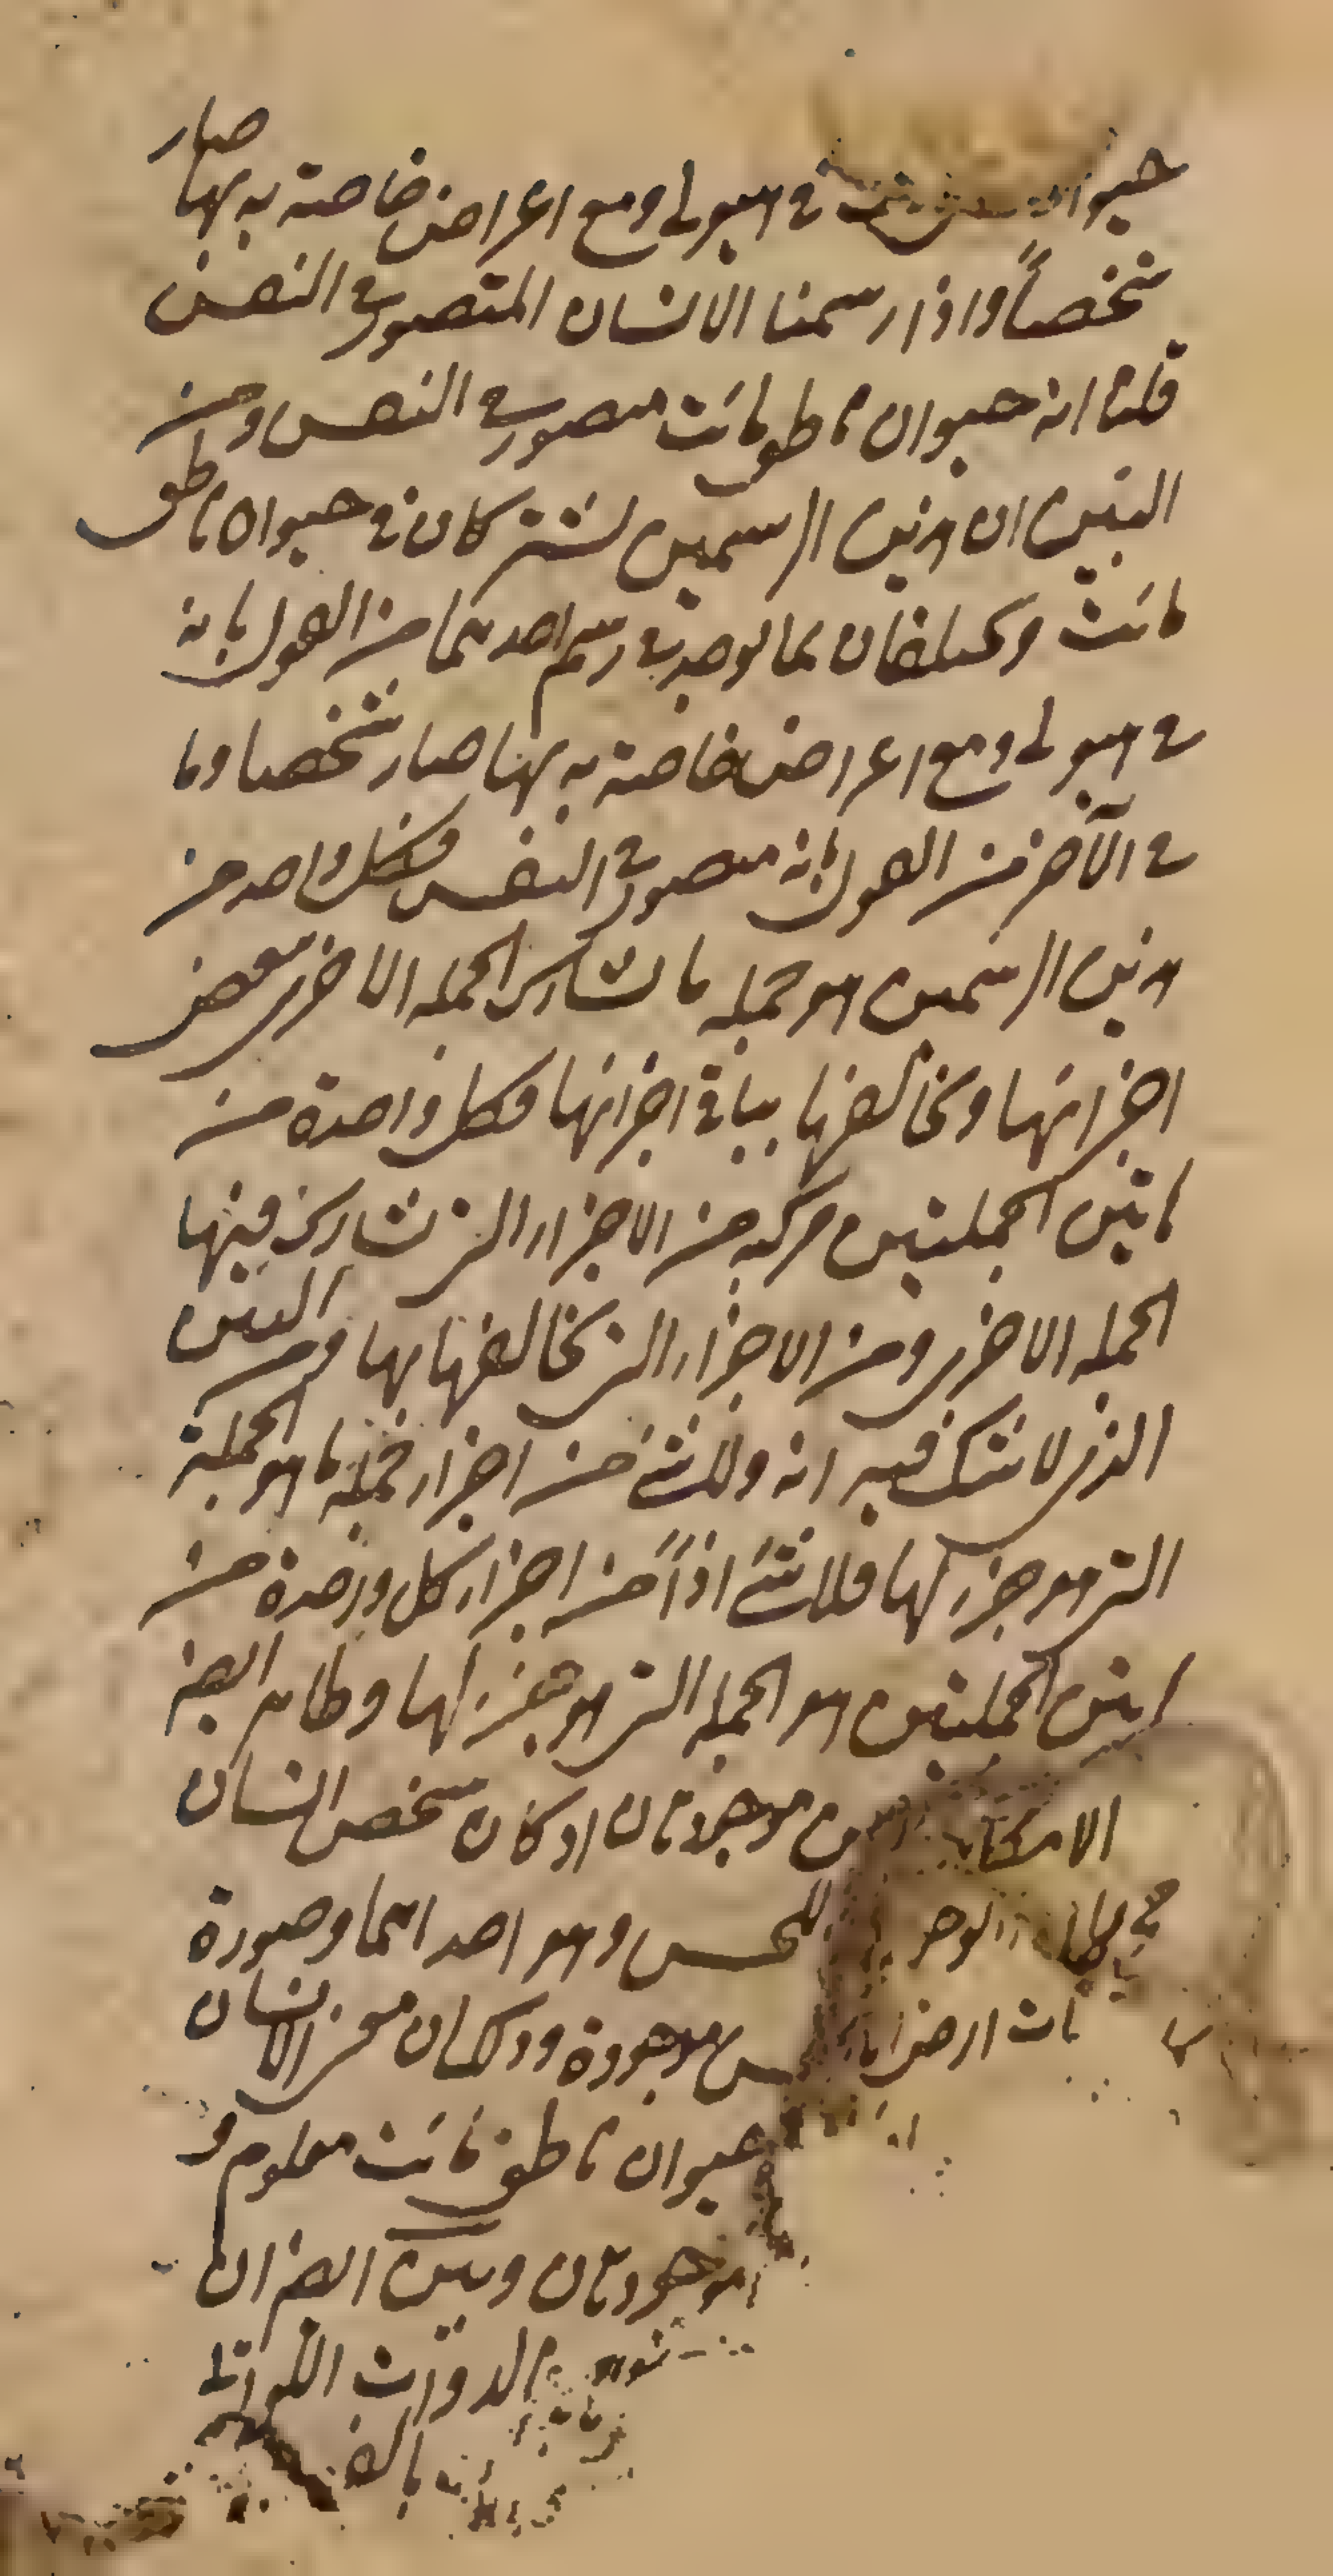 حيوان في هيولى ومع اعراض خاصة به بها صار
شخصاً واذا رسمنا الانسان المتصور في النفس
قلنا انه حيوان ناطق مائت متصور في النفس ومن
البين ان هذين الرسمين يشتركان في حيوان ناطق
مائت ويختلفان بما يوجد في رسم احدهما من القول بانه
في هيولى ومع اعراض خاصة به بها صار شخصا وما
في الآخر من القول بانه متصور في النفس فكل واحد من
هذين الرسمين هو جملة ما تشارك الجملة الاخرى ببعض
اجزائها وتخالفها بباقي اجزائها فكل واحدة من
هاتين الجملتين مركبة من الاجزاء التي تشارك فيها
الجملة الاخرى ومن الاجزاء التي تخالفها بها ومن البين
الذي لا شك فيه انه ولا شئ من اجزاء جملة ما هو الجملة
التي هو جزء لها فلا شئ اذاً من اجزاء كل واحدة من
هاتين الجملتين هو الجملة التي هو جزء لها وظاهر ايضا
موجودتان اذ كان شخص انسان
للحس وهو احداهما وصورة
موجودة وذ كان معنى الانسان
حيوان ناطق مائت معلوم و
موجودتان وبين ايضا ان
الذوات اللواتي